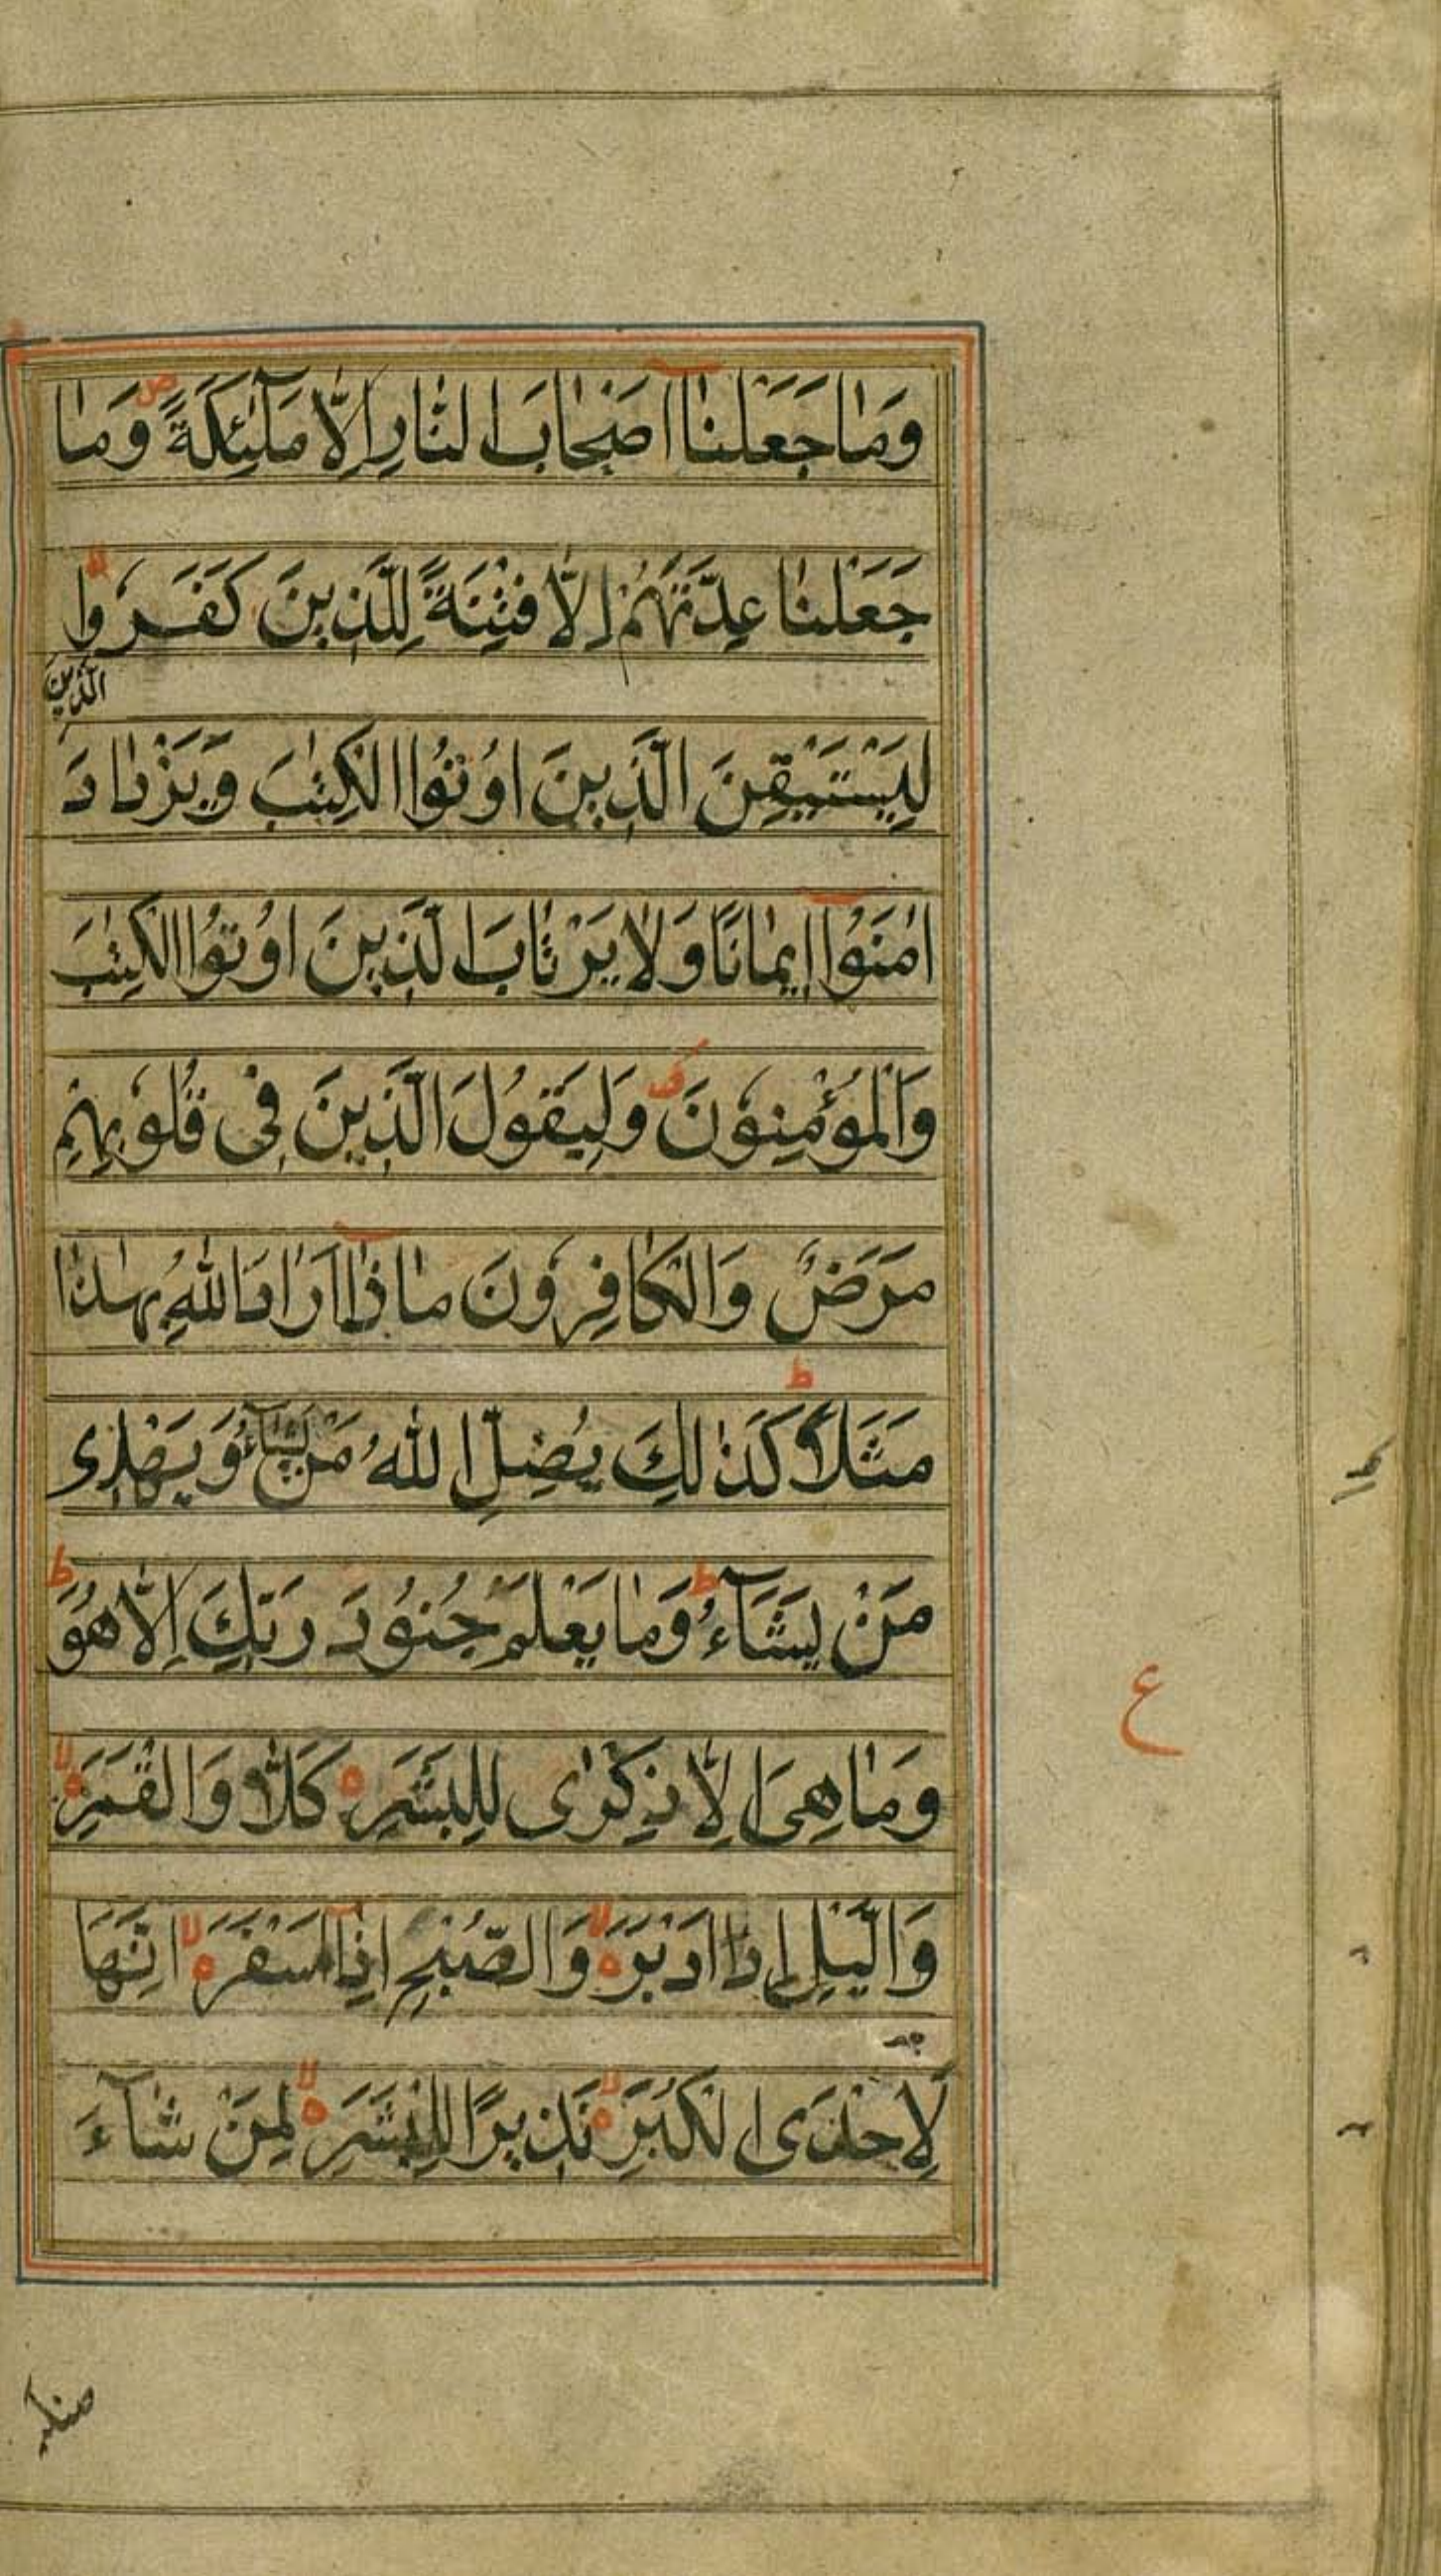 وَمٰا جَعَلْنٰا اَصْحٰابَ النّٰارِ اِلّٰا مَلٰٓئِكَةً ص وَمٰا
جَعَلْنٰا عِدَّتَهُمْ اِلّٰا فِتْنَةً لِلَّذِينَ كَفَرُوا لا
الَّذِينَ
لِيَسْتَيْقِنَ الَّذِينَ اُوتُوا الْكِتٰبَ وَيَزْدٰادَ
اٰمَنُوٓا اِيمٰانًا وَلٰا يَرْتٰابَ الَّذِينَ اُوتُوا الْكِتٰبَ
وَالْمُؤْمِنُونَ وَلِيَقُولَ الَّذِينَ فِى قُلُوبِهِمْ
مَرَضٌ وَالْكٰافِرُونَ مٰاذٰٓا اَرٰادَ اللهُ بِهٰذٰا
مَثَلًا ط كَذٰلِكَ يُضِلُّ اللهُ مَنْ يَشَآءُ وَيَهْدِى
مَنْ يَشَآءُ ط وَمٰا يَعْلَمُ جُنُودَ رَبِّكَ اِلّٰا هُوَ ط
وَمٰا هِىَ اِلّٰا ذِكْرٰى لِلْبَشَرِ ه كَلّٰا وَالْقَمَرِ ه لا
ع
وَالَّيْلِ اِذْ اَدْبَرَ ه لا وَالصُّبْحِ اِذٰٓا اَسْفَرَ ه لا اِنَّهَا
لَاِحْدَى الْكُبَرِ ه لا نَذِيرًا لِلْبَشَرِ ه لا لِمَنْ شٰآءَ
منكم